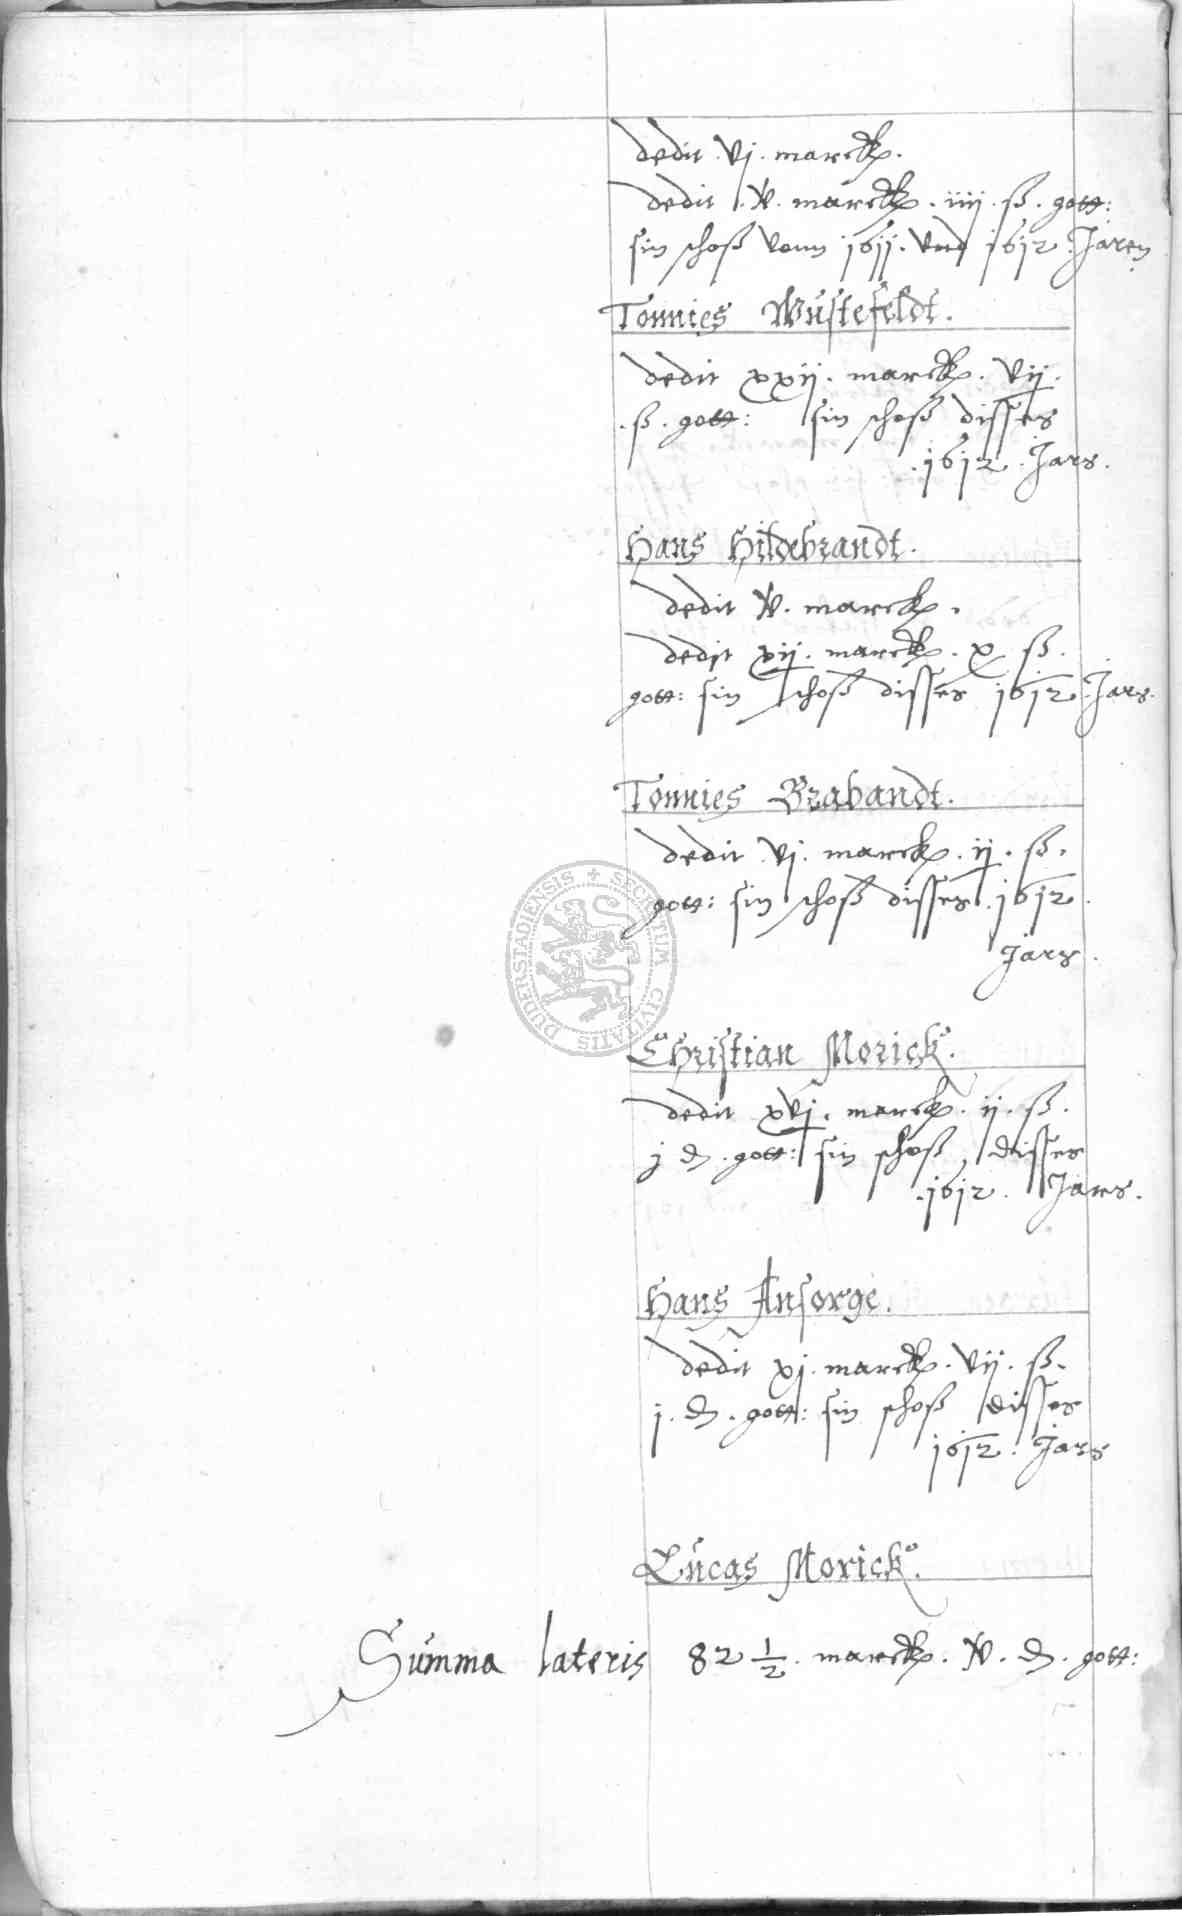 dedit . vj . marck .
dedit . v . marck . iiij . ß . gott :
sin schoß vonn 1611 . vnd 1612 Jaren
Tonnies Wüstefeldt .
dedit xxij . marck . vij .
. ß . gott : sin schoß disses
. 1612 . Jars .
Hans Hildebrandt .
dedit v . marck .
dedit xij . marck . x ß .
gott : sin schoß disses 1612 . Jars .
Tonnies Brabandt .
dedit . vj . marck . ij . ß .
gott : sin schoß disses . 1612 .
Jars .
SECRETUM CIVITATIS DUDERSTADIENSIS
Christian Morick .
dedit xvj . marck . ij . ß .
j ₰ . gott : sin schoß disses
. 1612 . Jars .
Hans Ansorge .
dedit xj . marck . vij . ß .
j . ₰ . gott : sin schoß disses
1612 . Jars
Lücas Morick .
Summa lateris 82 1/2 . marck . v . ₰ . gott :